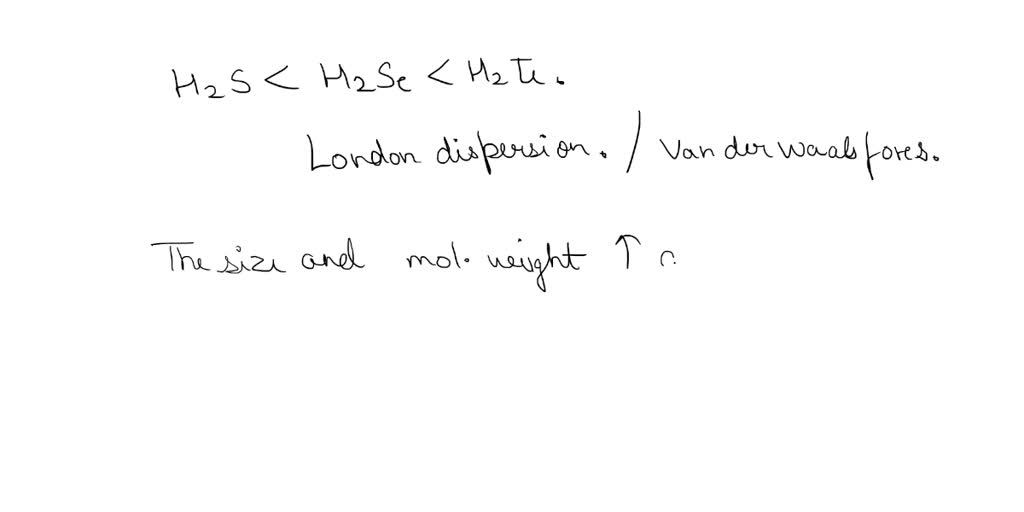 H₂S < H₂Se < H₂Te.
London dispersion. / Van der waals fores.
The size and mol. weight ↑